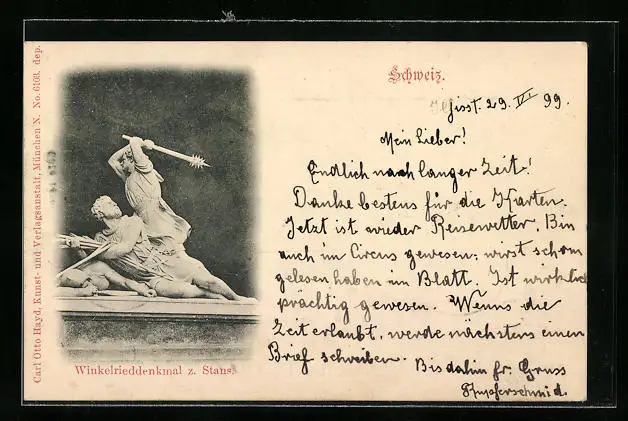 Carl Otto Hayd, Kunst- und Verlagsanstalt, München N. No. 6103. dep.
Schweiz.
29. VI. 99.
Mein Lieber!
Endlich nach langer Zeit!
Danke bestens für die Karten.
Jetzt ist wieder Reisewetter. Bin
auch im Circus gewesen; wirst schon
gelesen haben im Blatt. Ist wirklich
prachtig gewesen. Wenns die
Zeit erlaubt, werde nächstens einen
Brief schreiben. Bis dahin fr. Gruss
Kupferschmid.
Winkelrieddenkmal z. Stans.